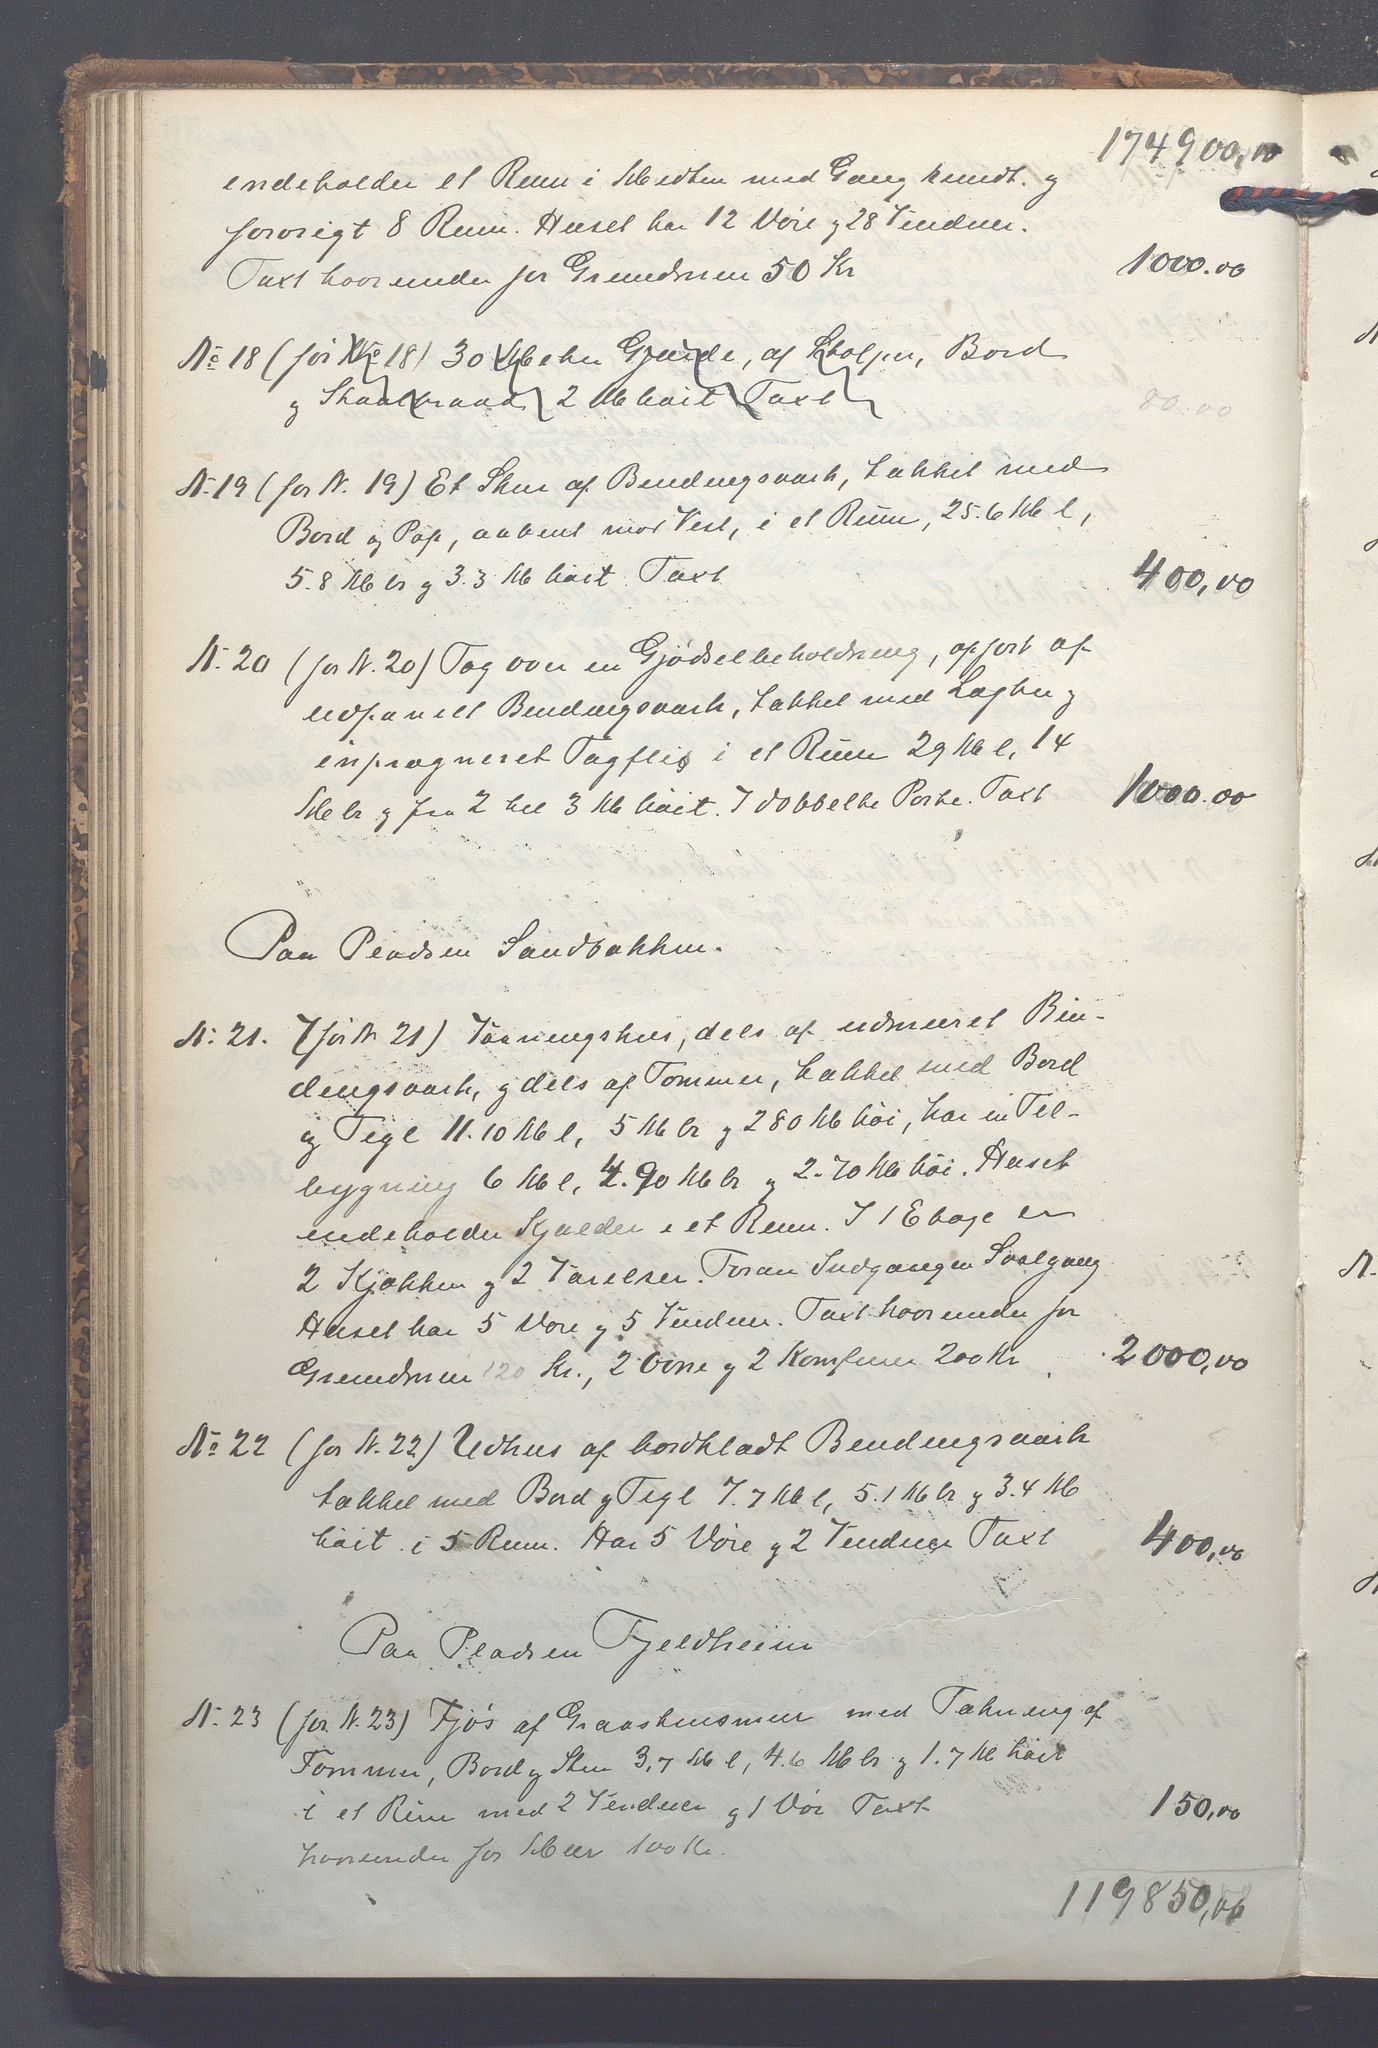 174900,00
indeholder et Rum i Midten med Gang rundt. og
forøvrigt 8 Rum. Huset har 12 Døre og 28 Vinduer.
Taxt hvorunder for Grundmur 50 Kr 1000.00
No 18 (før No 18) 30 Meter Gjærde, af Stolper, Bord
og 2 M høit Taxt 80.00
N. 19 (før N. 19) Et Skur af Bindingsværk, tækket med
Bord og Pap, aabent mod Vest, i et Rum, 25.6 M l,
5.8 M br og 3.3 M høit Taxt 400,00
N. 20 (før N. 20) Tag over en Gjødselbeholdning, opført af
udpanelt Bindingsværk, tækket med Lægter og
inprægneret Tagflis i et Rum 29 M l, 14
M br og fra 2 til 3 M høit. 7 dobbelte Porte. Taxt 1000.00
Paa Pladsen Sandbakken.
N. 21. (før N 21) Vaaningshus, dels af udmuret Bin-
dingsværk, og dels af Tømmer, tækket med Bord
og Tegl 11.10 M l, 5 M br og 2 80 M høi, har en Til-
bygning 6 M l, 4.90 M br og 2.70 M høi. Huset
indeholder Kjælder i et Rum. I 1 Etage er
2 Kjøkken og 2 Værelser. Foran Indgangen Svalgang
Huset har 5 Døre og 5 Vinduer. Taxt hvorunder for
Grundmur 120 Kr., 2 Ovne og 2 Komfurer 200 Kr 2000,00
No 22 (før N. 22) Udhus af bordklædt Bindingsværk
tækket med Bord og Tegl 7.7 M l, 5.1 M br og 3.4 M
høit i 5 Rum. Har 5 Døre og 2 Vinduer Taxt 400,00
Paa Pladsen Fjeldheim
N. 23 (før N. 23) Fjøs af Graastensmur med Tækning af
Tømmer, Bord og Sten 3,7 M l, 4.6 M br og 1.7 M høit
i et Rum med 2 Vinduer og 1 Dør Taxt 150,00
hvorunder for Mur 100 Kr.
119850,00